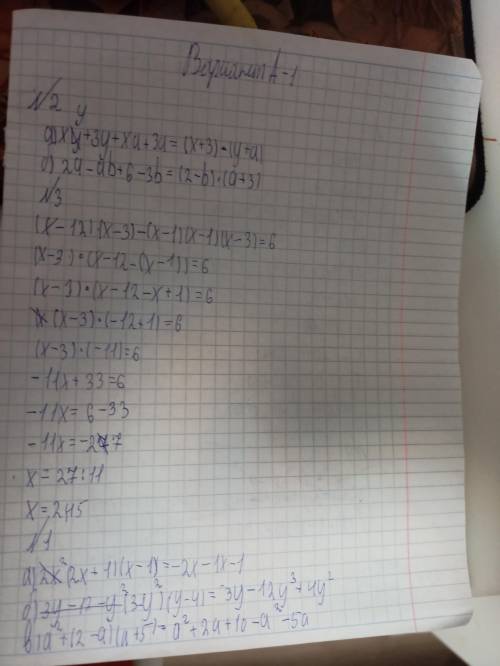 Вариант А-1
№2
а) xy+3y+xa+3a=(x+3)·(y+a)
б) 2a-ab+6-3b=(2-b)·(a+3)
№3
(x-12)(x-3)-(x-1)(x-1)(x-3)=6
(x-3)·(x-12-(x-1))=6
(x-3)·(x-12-x+1)=6
(x-3)·(-12+1)=6
(x-3)·(-11)=6
-11x+33=6
-11x=6-33
-11x=-27
x=27:11
x=2,45
№1
а) (2x+1)(x-1)=-2x-1x-1
б) (3y²)(y-4)=3y-12y³+4y²
в) a²+(2-a)(a+5)=a²+2a+10-a²-5a